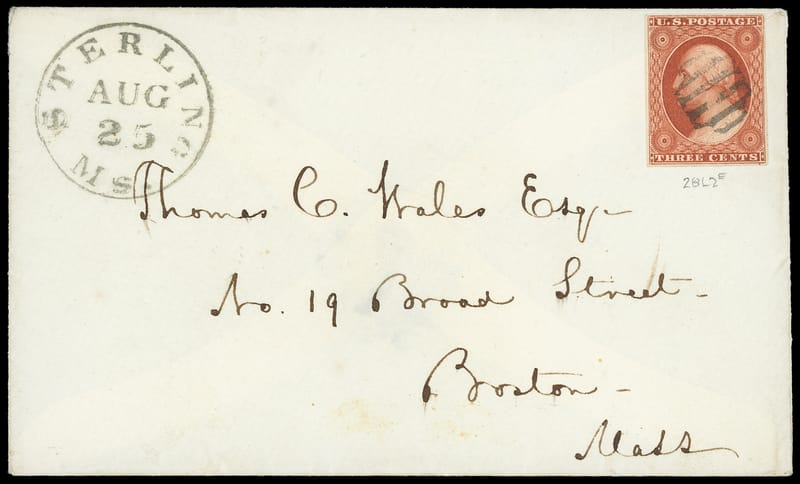 STERLING
AUG
25
Ms.
U.S. POSTAGE
PAID
THREE CENTS
28L2E
Thomas C. Wales Esq-
No. 19 Broad Street-
Boston-
Mass